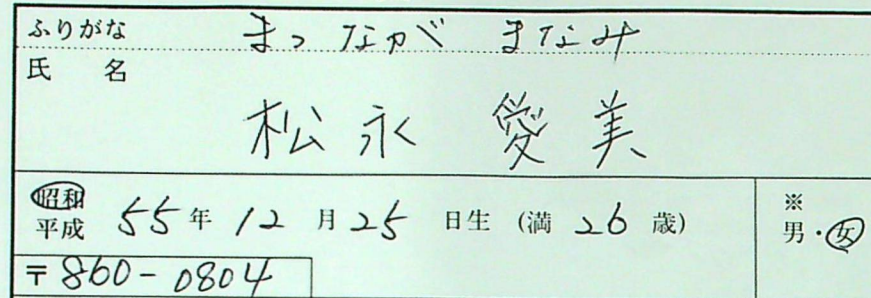 ふりがな まつなが まなみ
氏 名
松永 愛美
昭和
平成 55年 12月25日生 (満 26歳)
※
男・女
〒860-0804